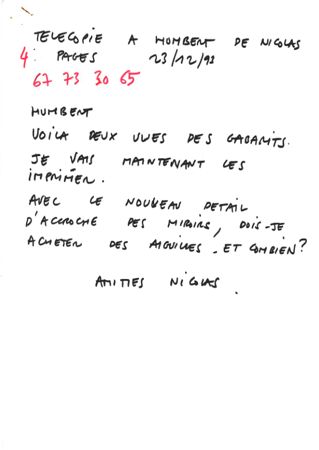 TELECOPIE A HUMBERT DE NICOLAS
4 PAGES 23/12/92
67 73 30 65
HUMBERT
VOILA DEUX VUES DES GABARITS.
JE VAIS MAINTENANT LES
IMPRIMER.
AVEC LE NOUVEAU DETAIL
D'ACCROCHE DES MIROIRS, DOIS-JE
ACHETER DES AIGUILLES. ET COMBIEN?
AMITIES NICOLAS.